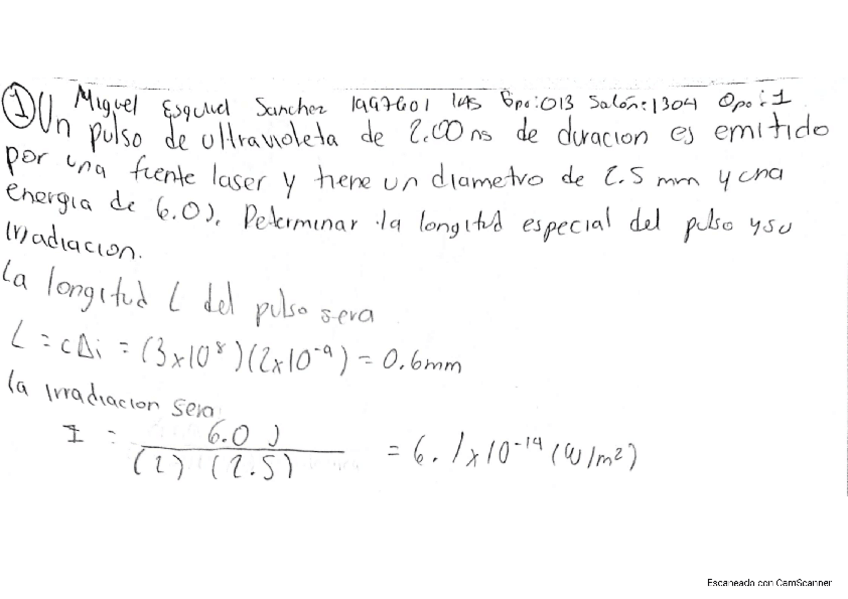 ① Miguel Esquivel Sanchez 1997601 IAS Gpo:013 Salón:1304 Opo:1
Un pulso de ultravioleta de 2.00 ns de duracion es emitido
por una fuente laser y tiene un diametro de 2.5 mm y una
energia de 6.0J. Determinar la longitud especial del pulso y su
irradiacion.
La longitud L del pulso sera
L = cΔi = (3x10⁸)(2x10⁻⁹) = 0.6mm
la irradiacion sera
I = 6.0 J / (2) (2.5) = 6.1x10⁻¹⁴ (W/m²)
Escaneado con CamScanner